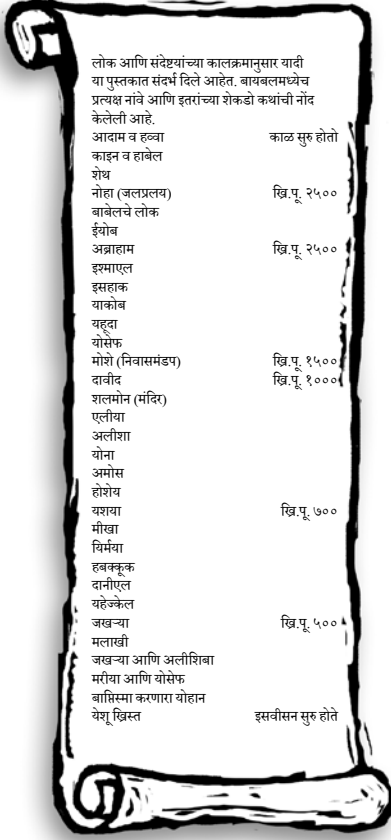 लोक आणि संदेष्टयांच्या कालक्रमानुसार यादी
या पुस्तकात संदर्भ दिले आहेत. बायबलमध्येच
प्रत्यक्ष नांवे आणि इतरांच्या शेकडो कथांची नोंद
केलेली आहे.
आदाम व हव्वा काळ सुरु होतो
काइन व हाबेल
शेथ
नोहा (जलप्रलय) ख्रि.पू. २५००
बाबेलचे लोक
ईयोब
अब्राहाम ख्रि.पू. २५००
इश्माएल
इसहाक
याकोब
यहूदा
योसेफ
मोशे (निवासमंडप) ख्रि.पू. १५००
दावीद ख्रि.पू. १०००
शलमोन (मंदिर)
एलीया
अलीशा
योना
अमोस
होशेय
यशया ख्रि.पू. ७००
मीखा
यिर्मया
हबक्कूक
दानीएल
यहेज्केल
जखऱ्या ख्रि.पू. ५००
मलाखी
जखऱ्या आणि अलीशिबा
मरीया आणि योसेफ
बाप्तिस्मा करणारा योहान
येशू ख्रिस्त इसवीसन सुरु होते